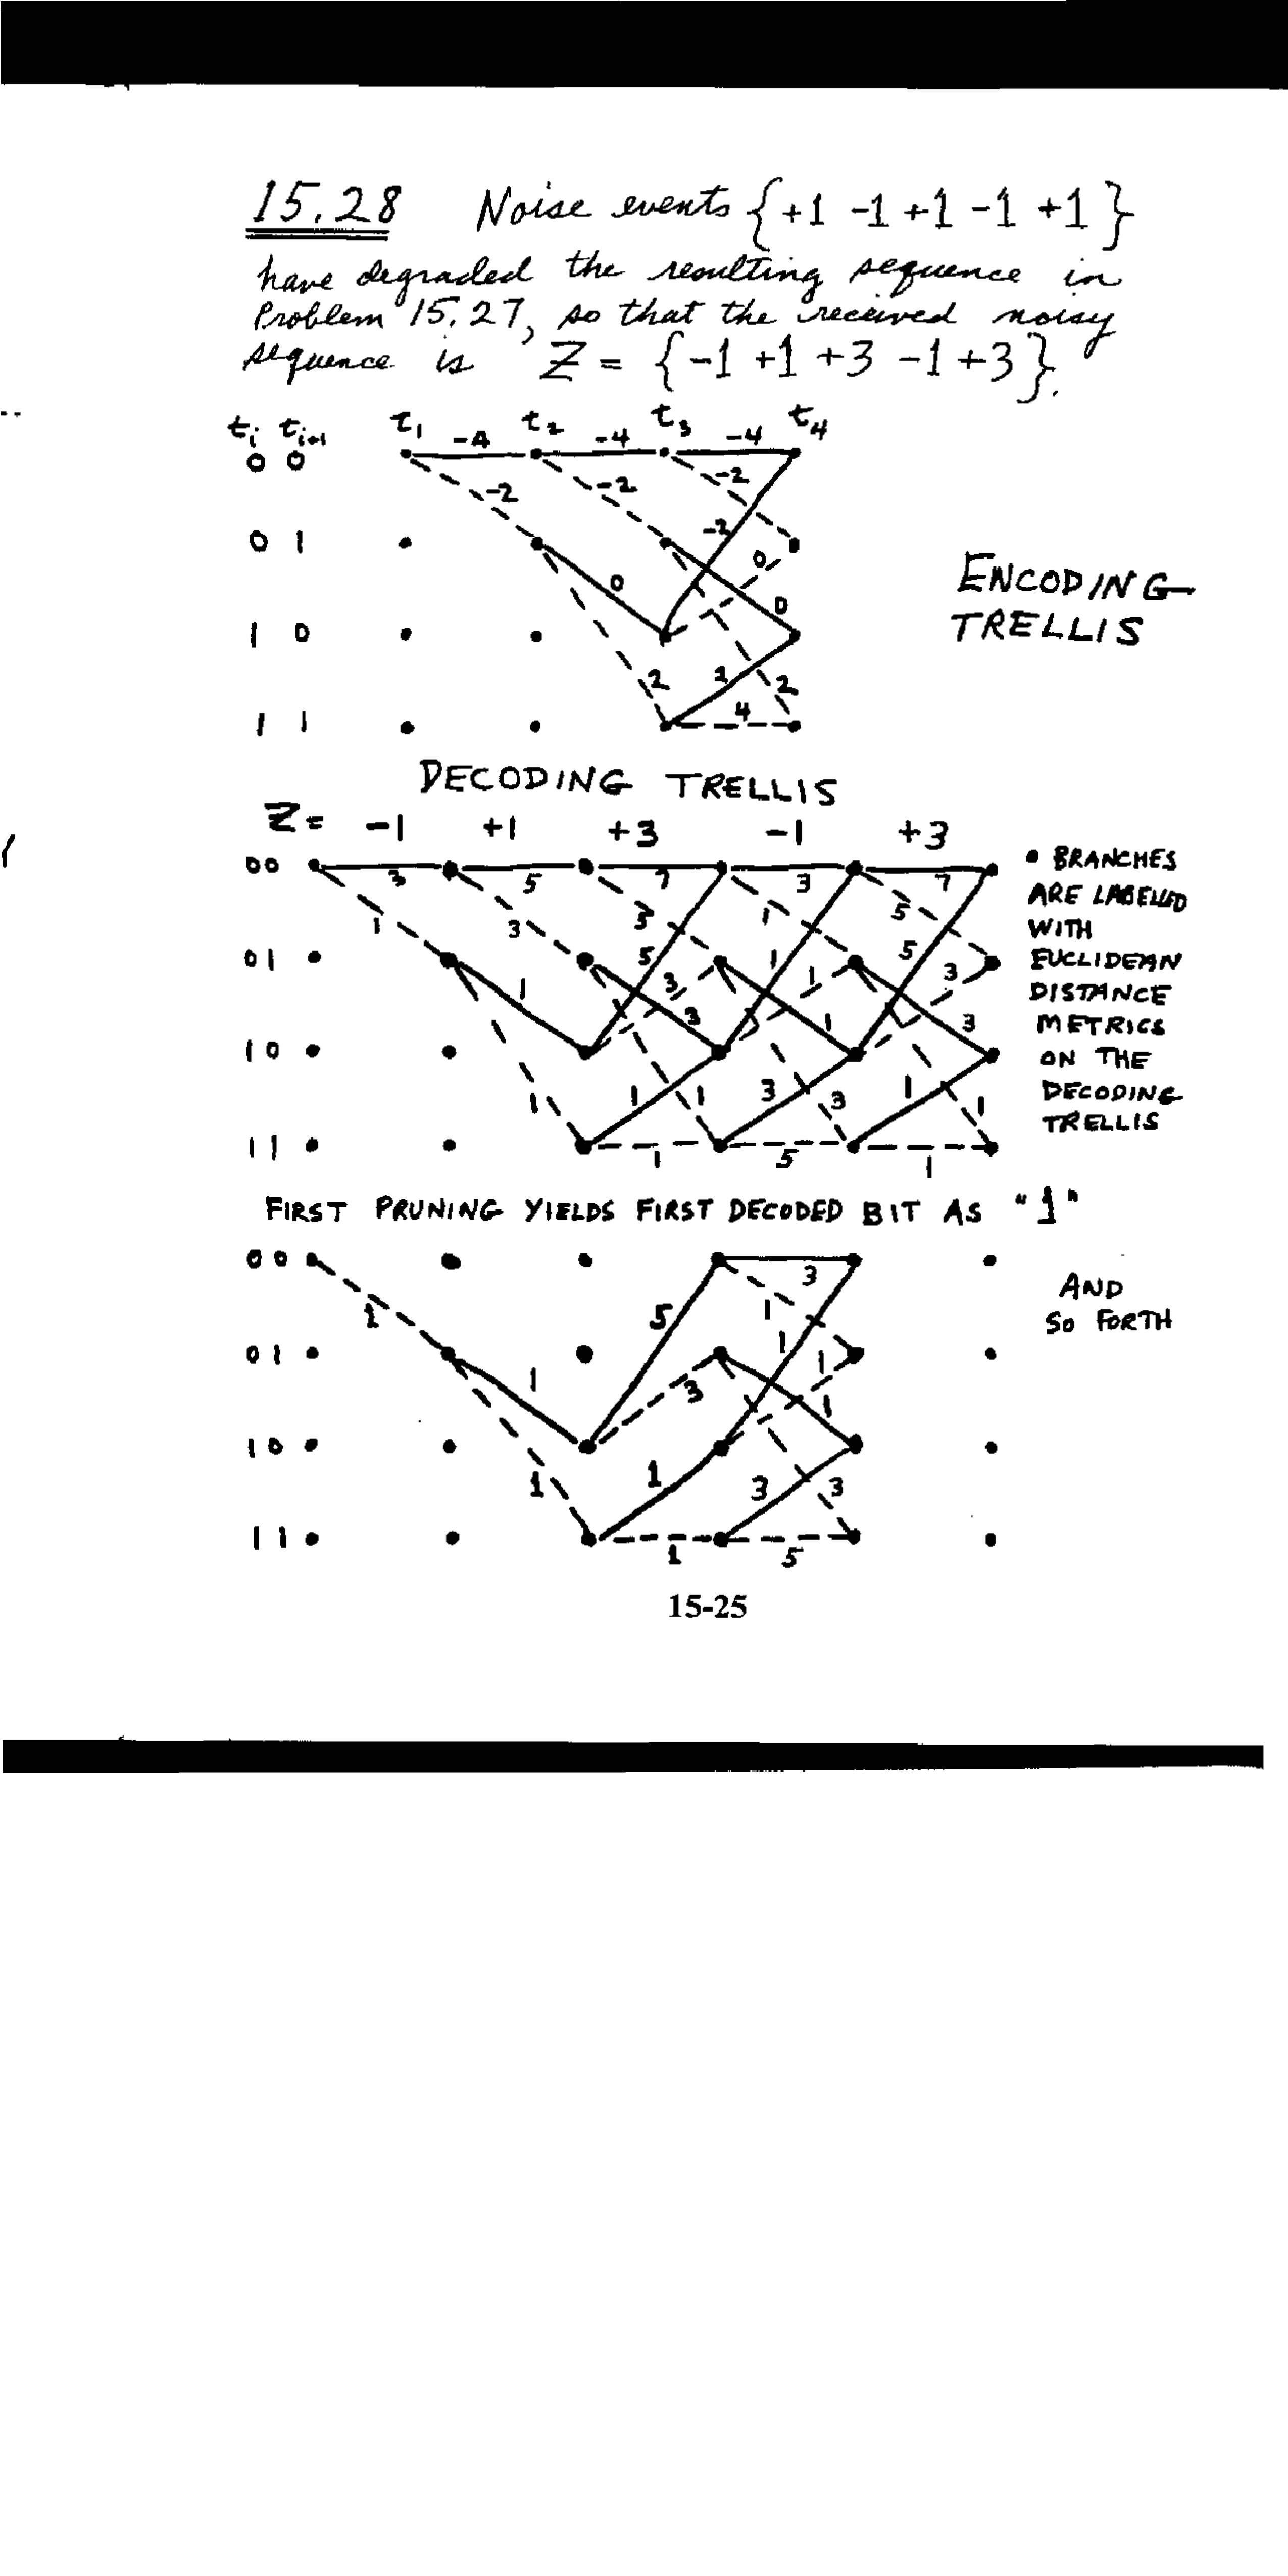 15.28 Noise events {+1 -1 +1 -1 +1}
have degraded the resulting sequence in
Problem 15.27, so that the received noisy
sequence is Z = {-1 +1 +3 -1 +3}.
ti ti+1 t1 t2 t3 t4
-4 -4 -4
0 0
-2 -2 -2
-2
0 1
0 0
ENCODING
TRELLIS
1 0
0
2 2 2
4
1 1
DECODING TRELLIS
Z = -1 +1 +3 -1 +3
00
3 5 7 3 7
1 3 3 1 5
01
5 1 5
1 3 3 1 1 3 3
10
1 1 1 3 3 1 1
11
1 5 1
• BRANCHES
ARE LABELLED
WITH
EUCLIDEAN
DISTANCE
METRICS
ON THE
DECODING
TRELLIS
FIRST PRUNING YIELDS FIRST DECODED BIT AS "1"
00
3
1 5 1
01
1 1 1
3 1
10
1 1 3 3
11
1 5
AND
SO FORTH
15-25